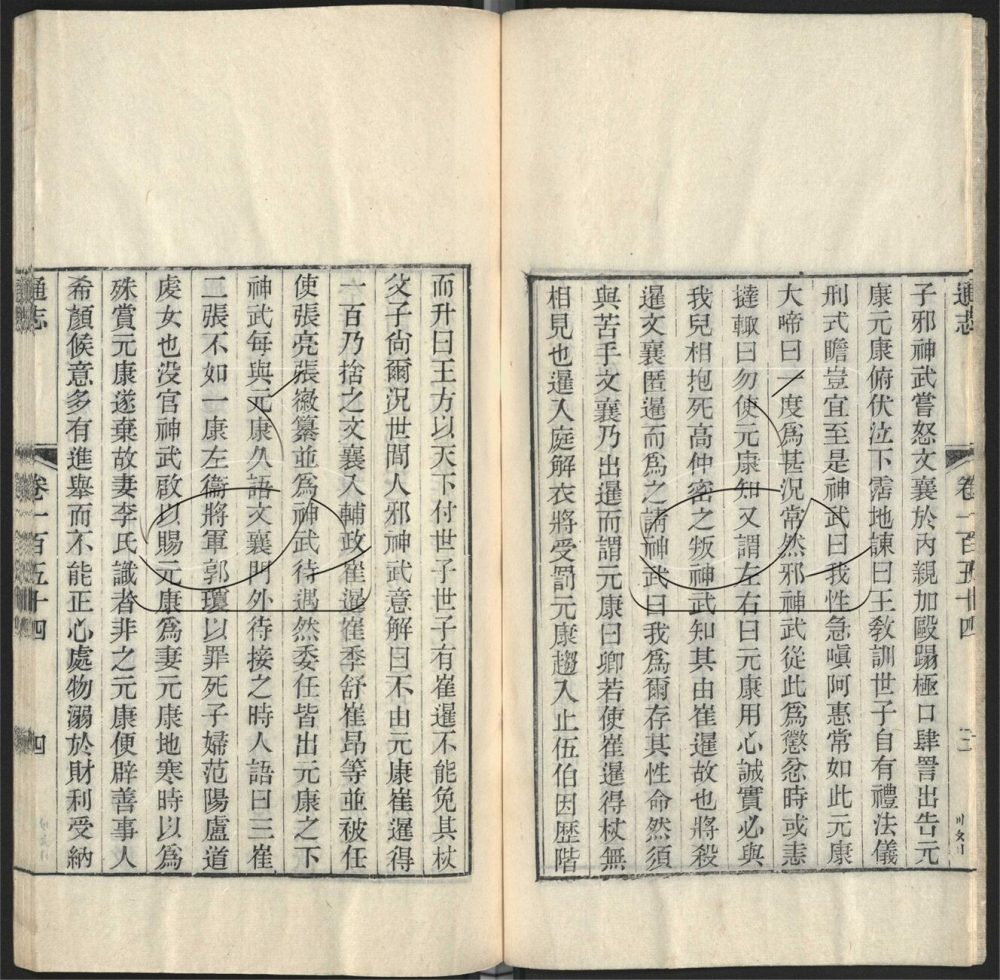 通志
卷一百五十四
子邪神武嘗怒文襄於內親加毆蹋極口肆詈出告元
康元康俯伏泣下霑地諫曰王敎訓世子自有禮法儀
刑式瞻豈宜至是神武曰我性急嗔阿惠常如此元康
大啼曰一度爲甚況常然邪神武從此爲懲忿時或恚
撻輙曰勿使元康知又謂左右曰元康用心誠實必與
我兒相抱死高仲密之叛神武知其由崔暹故也將殺
暹文襄匿暹而爲之請神武曰我爲爾存其性命然須
與苦手文襄乃出暹而謂元康曰卿若使崔暹得杖無
相見也暹入庭解衣將受罰元康趨入止伍伯因歷階
而升曰王方以天下付世子世子有崔暹不能免其杖
父子尙爾況世間人邪神武意解曰不由元康崔暹得
一百乃捨之文襄入輔政崔暹崔季舒崔昂等並被任
使張亮張徽纂並爲神武待遇然委任皆出元康之下
神武每與元康久語文襄門外待接之時人語曰三崔
二張不如一康左衞將軍郭瓊以罪死子婦范陽盧道
虔女也没官神武啟以賜元康爲妻元康地寒時以爲
殊賞元康遂棄故妻李氏識者非之元康便辟善事人
希顏候意多有進舉而不能正心處物溺於財利受納
通志
卷一百五十四
四